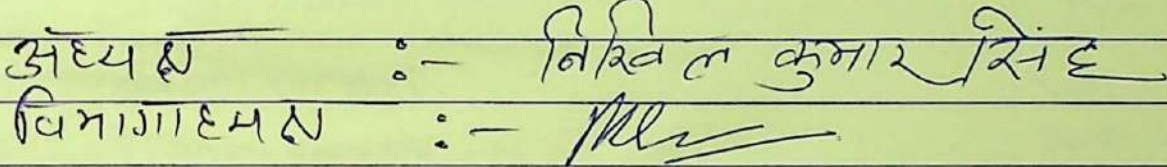 अध्यक्ष :- निखिल कुमार सिंह
विभागाध्यक्ष :-